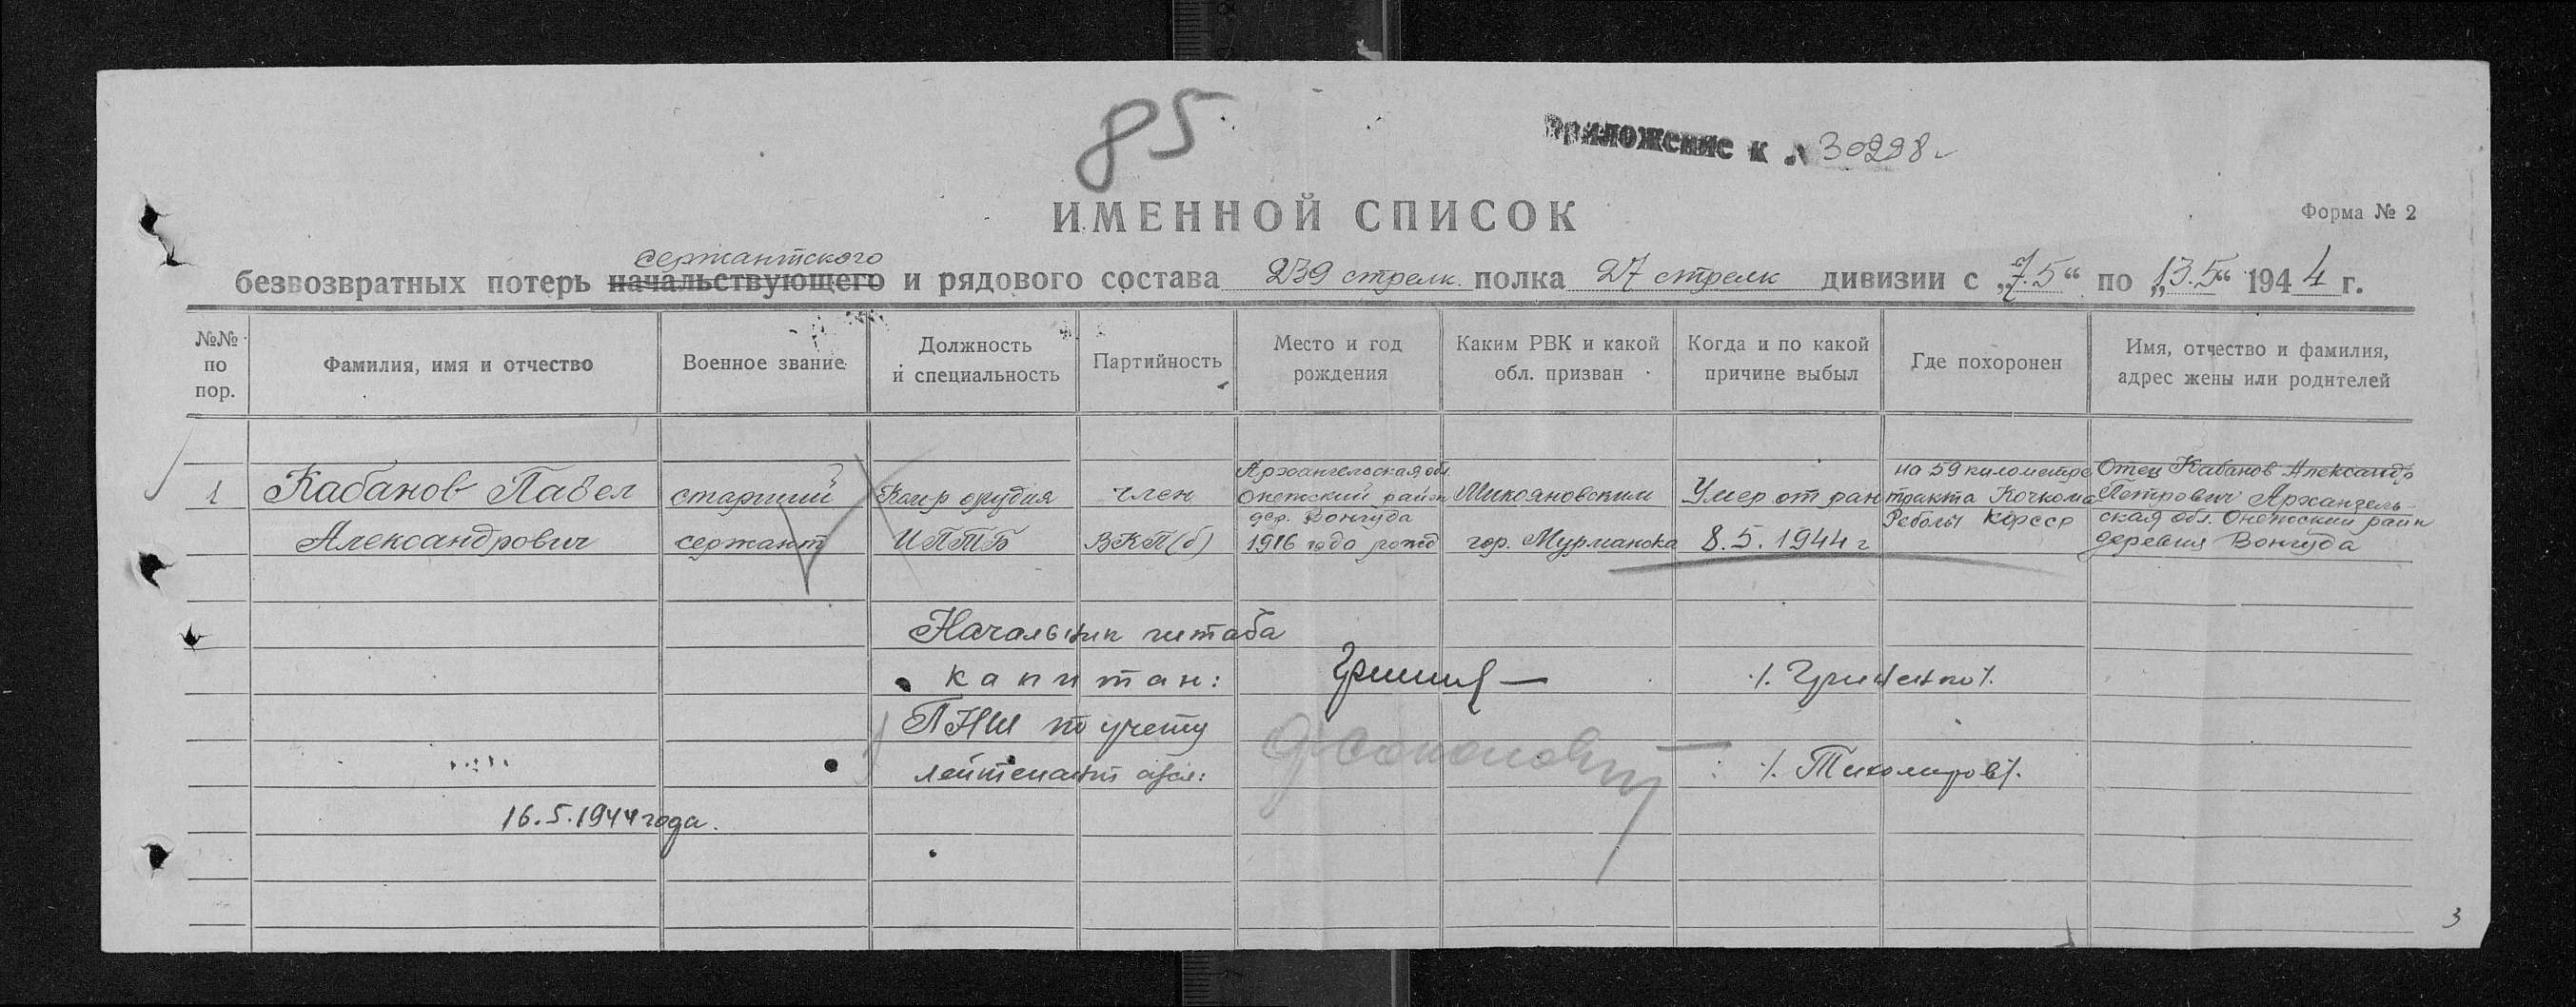 85
Приложение к № 30298
ИМЕННОЙ СПИСОК
Форма № 2
сержантского
безвозвратных потерь начальствующего и рядового состава 239 стрелк. полка 27 стрелк дивизии с „7.5“ по „13.5“ 1944 г.
№№ по пор.
Фамилия, имя и отчество
Военное звание
Должность и специальность
Партийность
Место и год рождения
Каким РВК и какой обл. призван
Когда и по какой причине выбыл
Где похоронен
Имя, отчество и фамилия, адрес жены или родителей
1
Кабанов Павел
Александрович
старший
сержант
Ком-р орудия
ИПТБ
член
ВКП(б)
Архангельская обл.
Онежский район
дер. Вонгуда
1916 года рожд
Микояновским
гор. Мурманска
Умер от ран
8.5.1944 г
на 59 километре
тракта Кочкома
Реболы КФССР
Отец Кабанов Александр
Петрович Архангель-
ская обл. Онежский райн
деревня Вонгуда
Начальник штаба
капитан:
/. Гриненко /.
ПНШ по учету
лейтенант а/сл:
/. Тихомиров /.
16.5.1944 года.
3